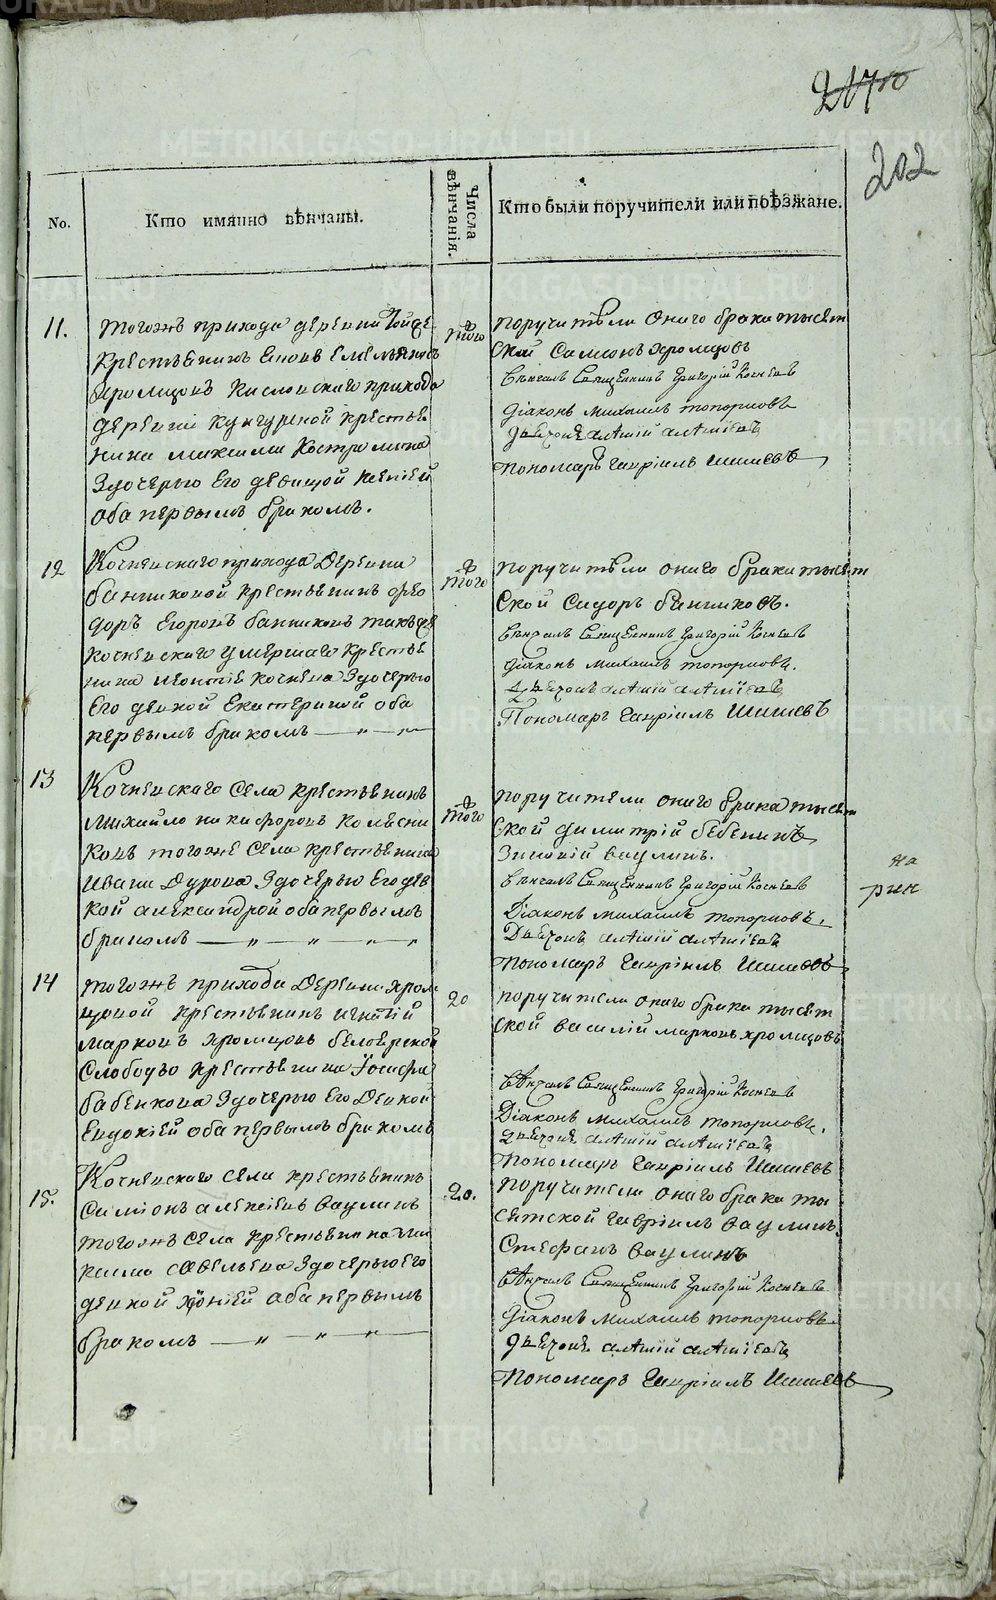 2170
202
No.
Кто имянно вѣнчаны.
Числа вѣнчанія.
Кто были поручители или поѣзжане.
11.
тогожъ прихода деревни тойже
крестьянинъ Емельяновъ
Хромцовъ Кисловскаго прихода
деревни Кунгурской крестья
нина Максима Костромина
здочерью Его девицой
оба первымъ бракомъ.
того
поручители онаго брака тысят
ской Самсонъ Хромцовъ
Вѣнчалъ Священникъ Григорій
Діаконъ Михаилъ Топорковъ
Пономарь Гавріилъ Шишевъ
12
Кочневскаго прихода Деревни
банниковой крестьянинъ Фео
доръ Егоровъ банниковъ такъже
кочневскаго умершаго крестья
нина Леонтія Кочнева здочерью
Его девкой Екатериной оба
первымъ бракомъ — „ — „ —
того
поручители онаго брака тысят
ской Сидоръ банниковъ.
Вѣнчалъ Священникъ Григорій
Діаконъ Михаилъ Топорковъ.
Пономарь Гавріилъ Шишевъ
13
Кочневскаго села крестьянинъ
Михайло никифоровъ колѣсни
ковъ тогоже села крестьянина
Ивана Дурова здочерью Его дев
кой александрой оба первымъ
бракомъ — „ — „ — „ — „
того
поручители онаго брака тысят
ской димитрій бебенинъ
Зиновій ваулинъ.
Вѣнчалъ Священникъ Григорій
Діаконъ Михаилъ Топорковъ.
Пономарь Гавріилъ Шишевъ
на
14
тогожъ прихода Деревни хром
цовой крестьянинъ
Марковъ хромцовъ белоярской
Слободы крестьянина Іосифа
бабенкова здочерью Его Девкой
Евдокіей оба первымъ бракомъ
20
поручители онаго брака тысят
ской василій марковъ хромцовъ
Вѣнчалъ Священникъ Григорій
Діаконъ Михаилъ Топорковъ.
Пономарь Гавріилъ Шишевъ
15.
Кочневскаго села крестьянинъ
Симіонъ алексіевъ ваулинъ
тогожъ села крестьянина Мак
сима Савельева здочерью его
девкой оба первымъ
бракомъ — „ — „ — „ —
20.
поручители онаго брака ты
сятской гавріилъ ваулинъ
Стефанъ ваулинъ
Вѣнчалъ Священникъ Григорій
Діаконъ Михаилъ Топорковъ.
Пономарь Гавріилъ Шишевъ
METRIKI.GASO-URAL.RU